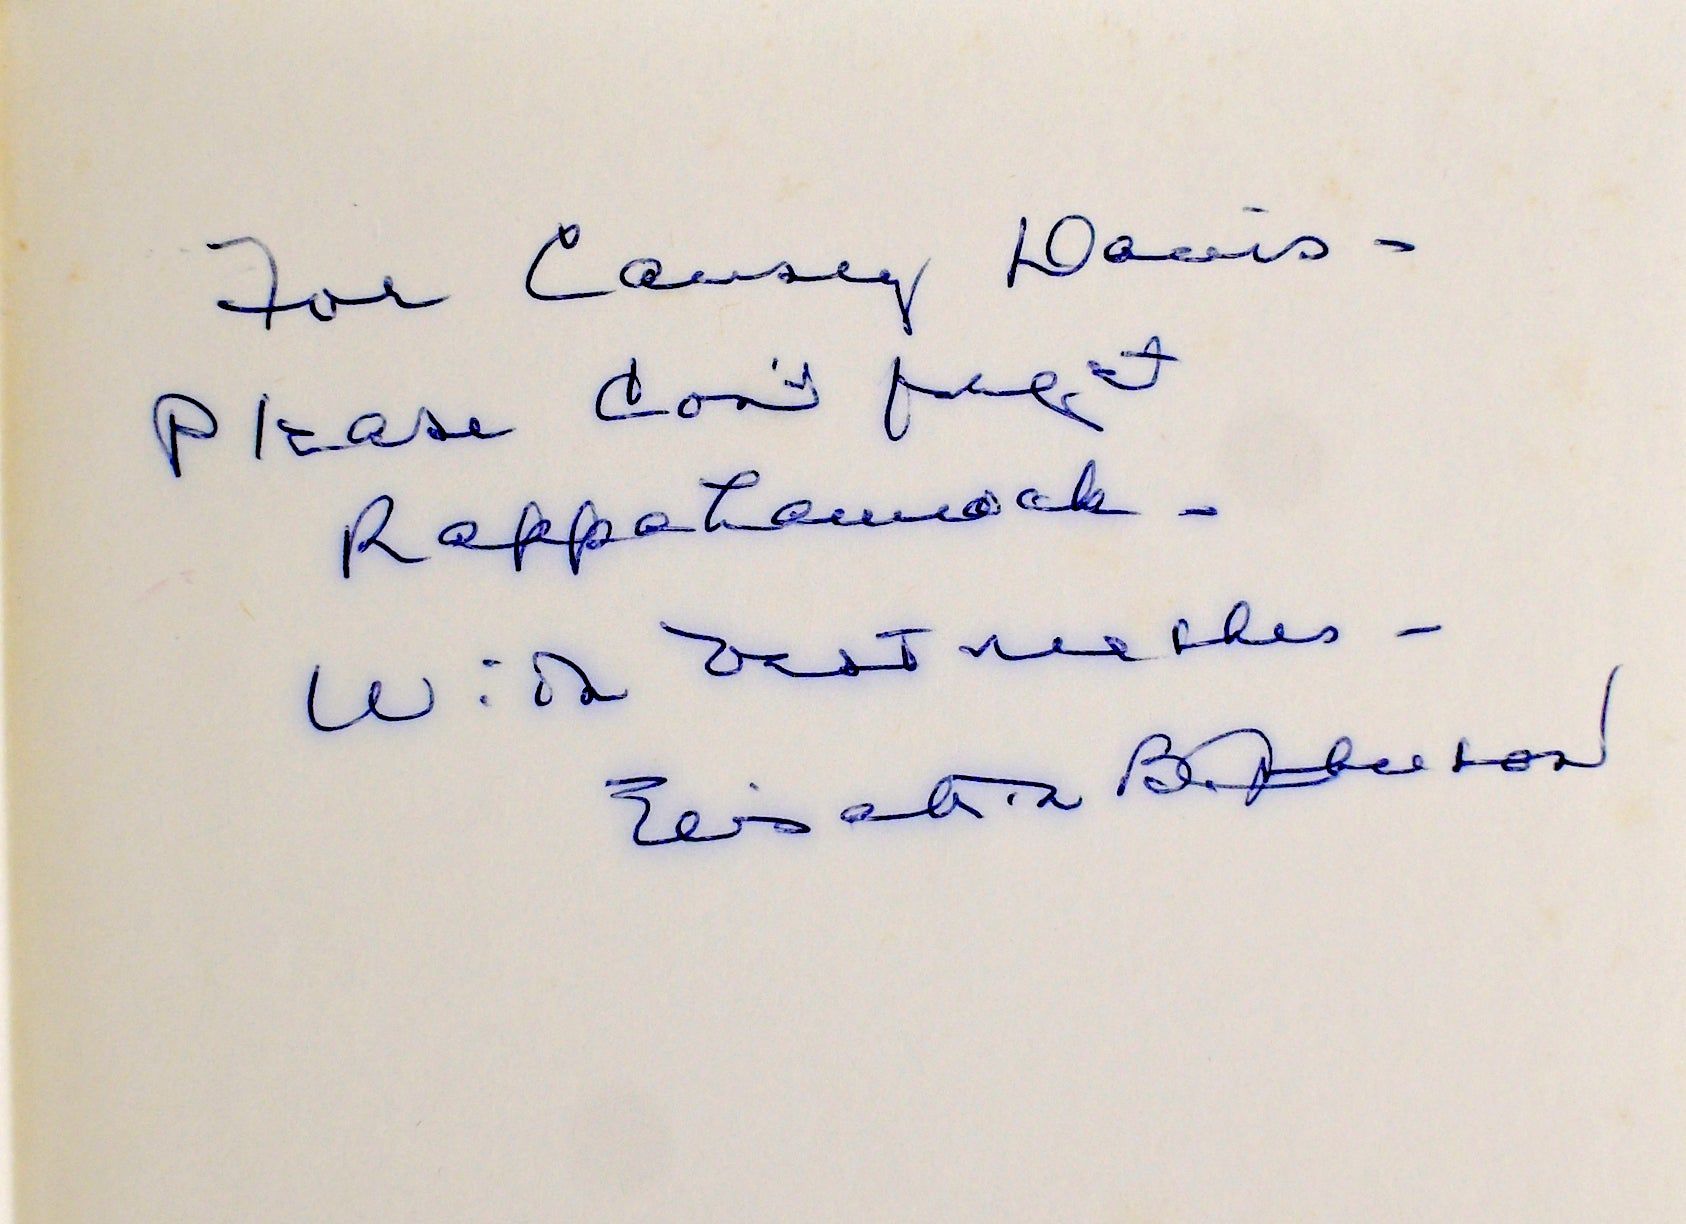 For Causey Davis -
Please Don't forget
Rappahannock -
With best wishes -
Elisabeth B. Johnson